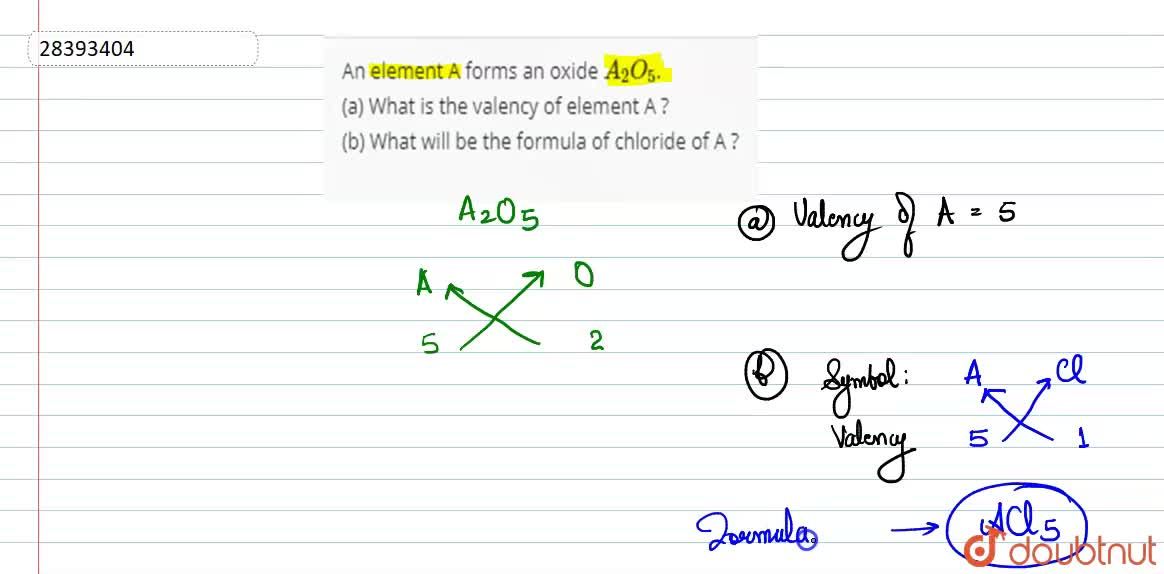 28393404
An element A forms an oxide A₂O₅.
(a) What is the valency of element A ?
(b) What will be the formula of chloride of A ?
A₂O₅
A O
5 2
(a) Valency of A = 5
(b) Symbol: A Cl
Valency 5 1
Formula → ACl₅
doubtnut